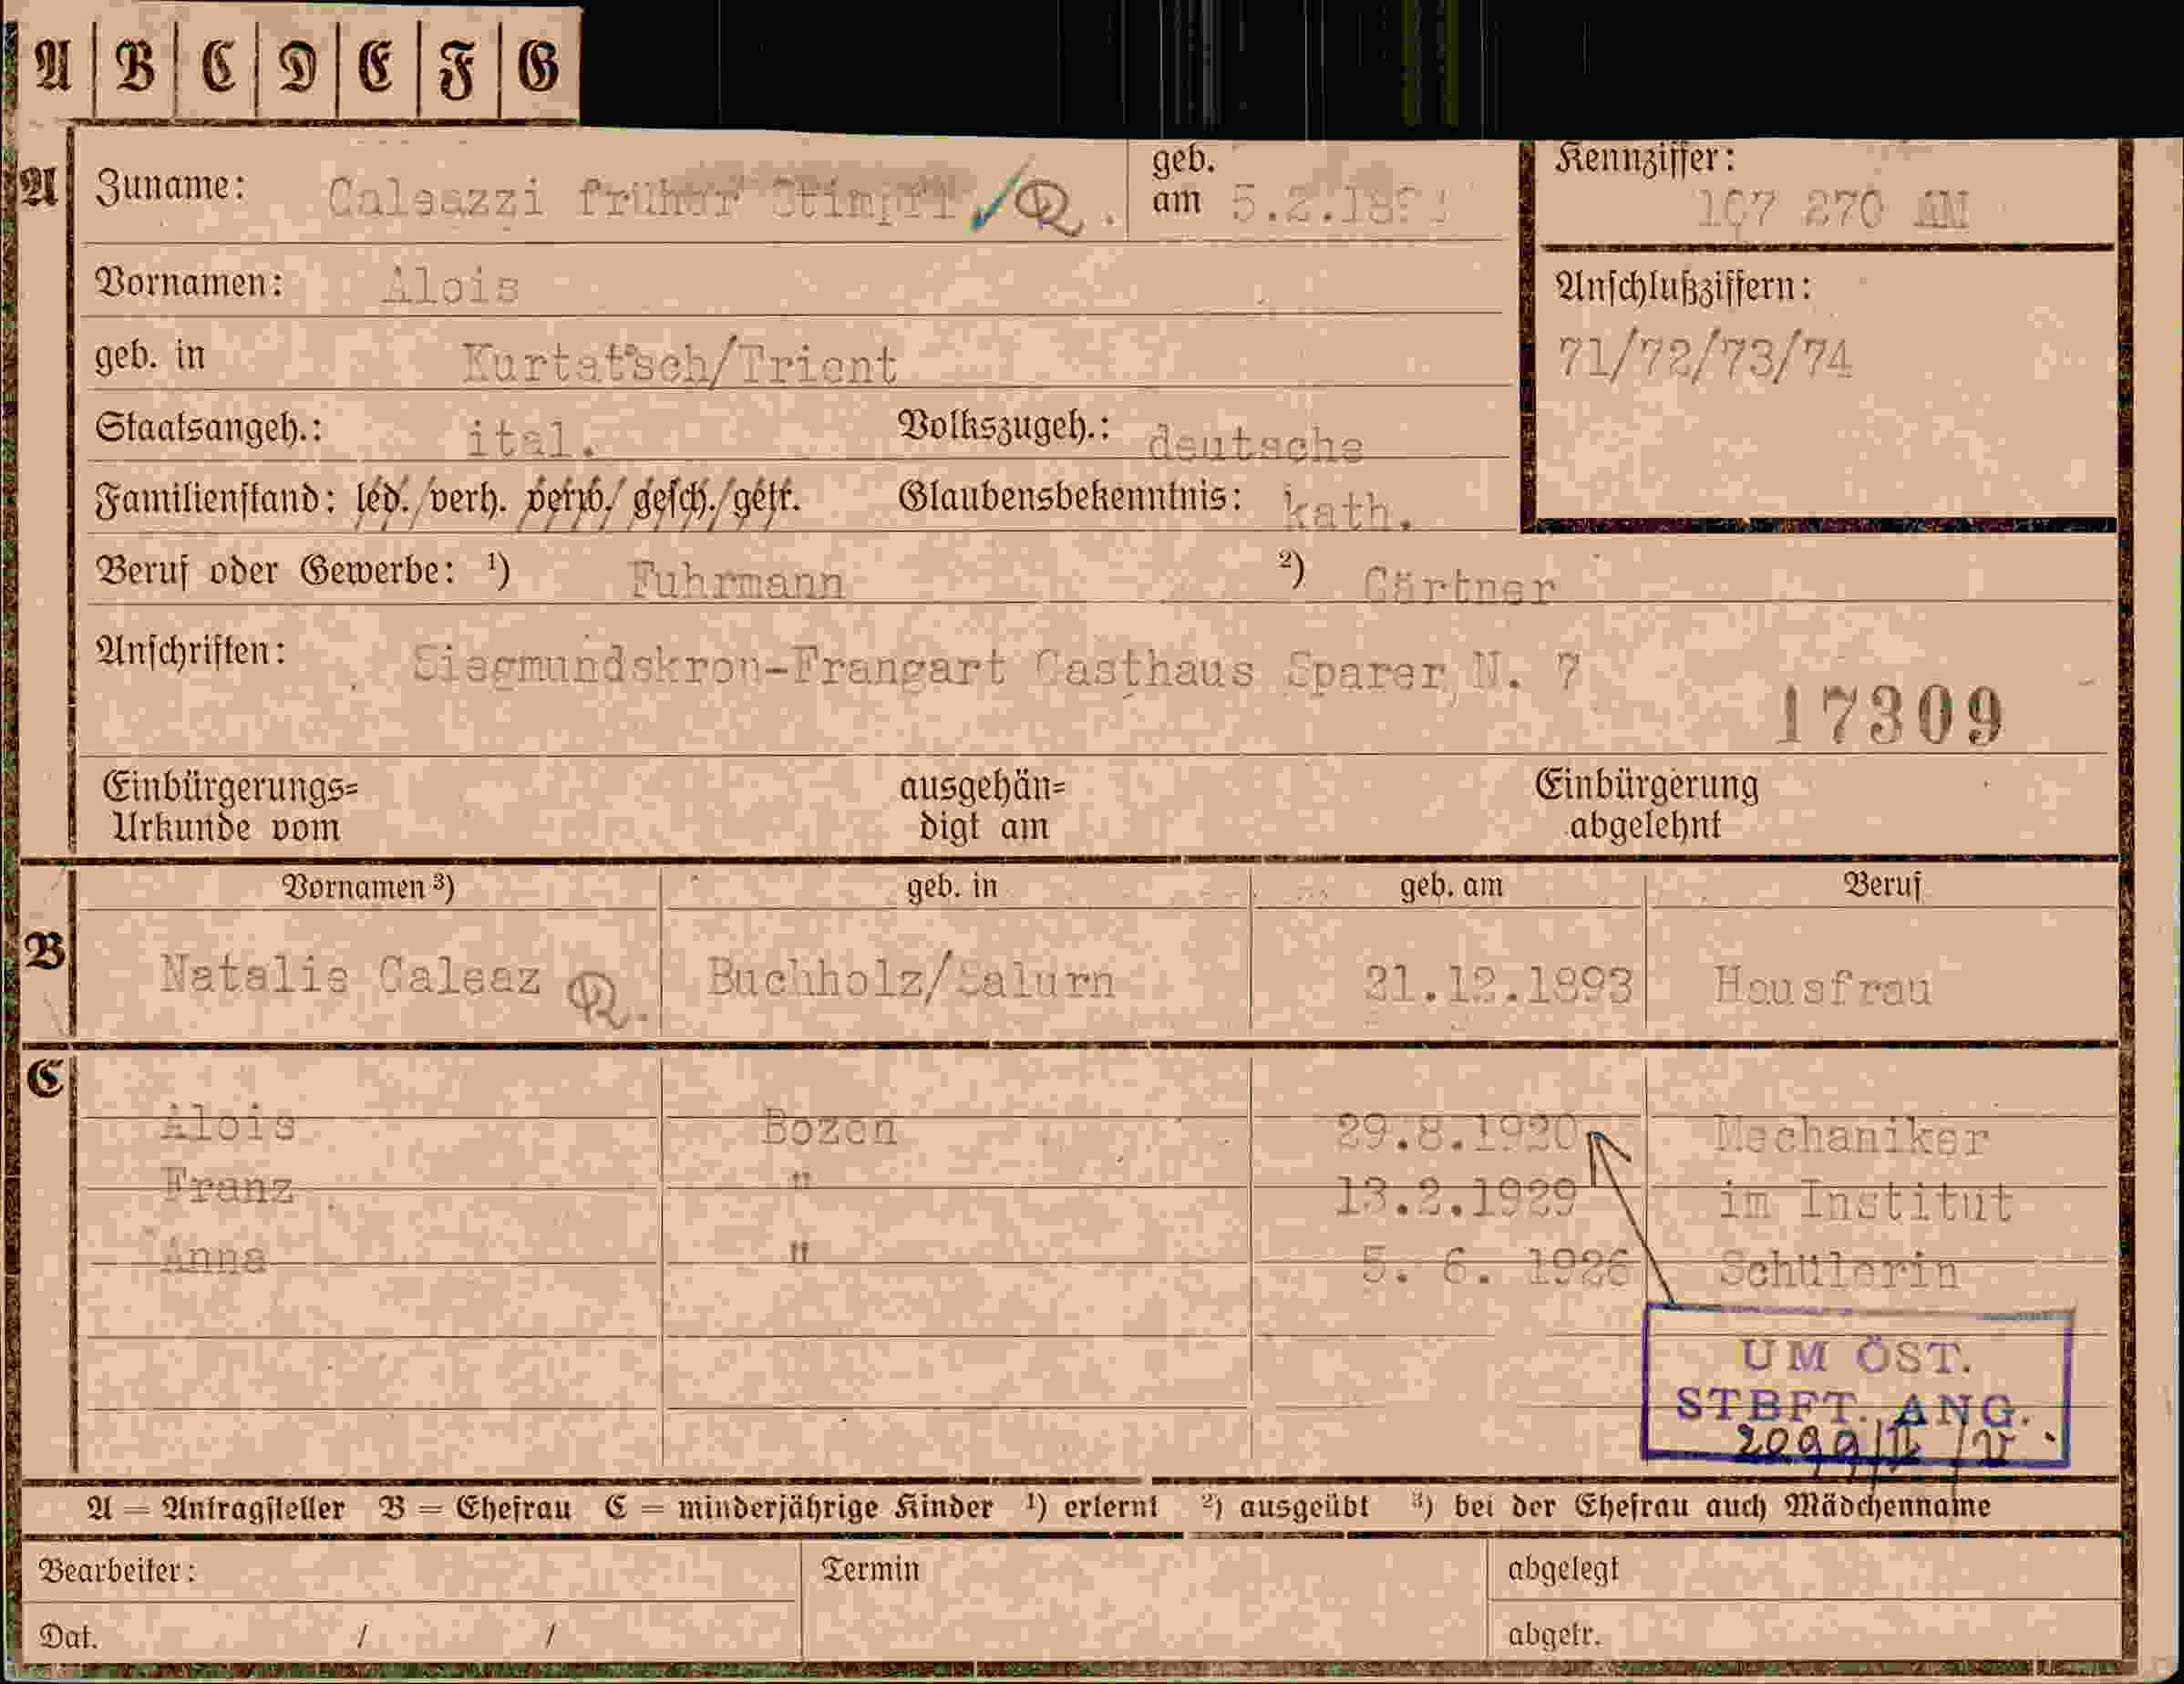 A B C D E F G
A Zuname: Caleazzi früher
geb. am 5.2.
Kennziffer: 107 270 AM
Vornamen: Alois
Anschlußziffern:
71/72/73/74
geb. in Kurtatsch/Trient
Staatsangeh.: ital. Volkszugeh.: deutsche
Familienstand: led./verh. verw./gesch./getr. Glaubensbekenntnis: kath.
Beruf oder Gewerbe: ¹) Fuhrmann ²) Gärtner
Anschriften: Siegmundskron-Frangart Gasthaus Sparer N. 7
17309
Einbürgerungs= ausgehän= Einbürgerung
Urkunde vom digt am abgelehnt
Vornamen ³) geb. in geb. am Beruf
B Natalie Caleaz Buchholz/Salurn 21.12.1893 Hausfrau
C
Alois Bozen 29.8.1920 Mechaniker
Franz " 13.2.1929 im Institut
Anna " 5. 6. 1926 Schülerin
UM ÖST.
STBFT. ANG.
A = Antragsteller B = Ehefrau C = minderjährige Kinder ¹) erlernt ²) ausgeübt ³) bei der Ehefrau auch Mädchenname
Bearbeiter: Termin abgelegt
Dat. / / abgetr.